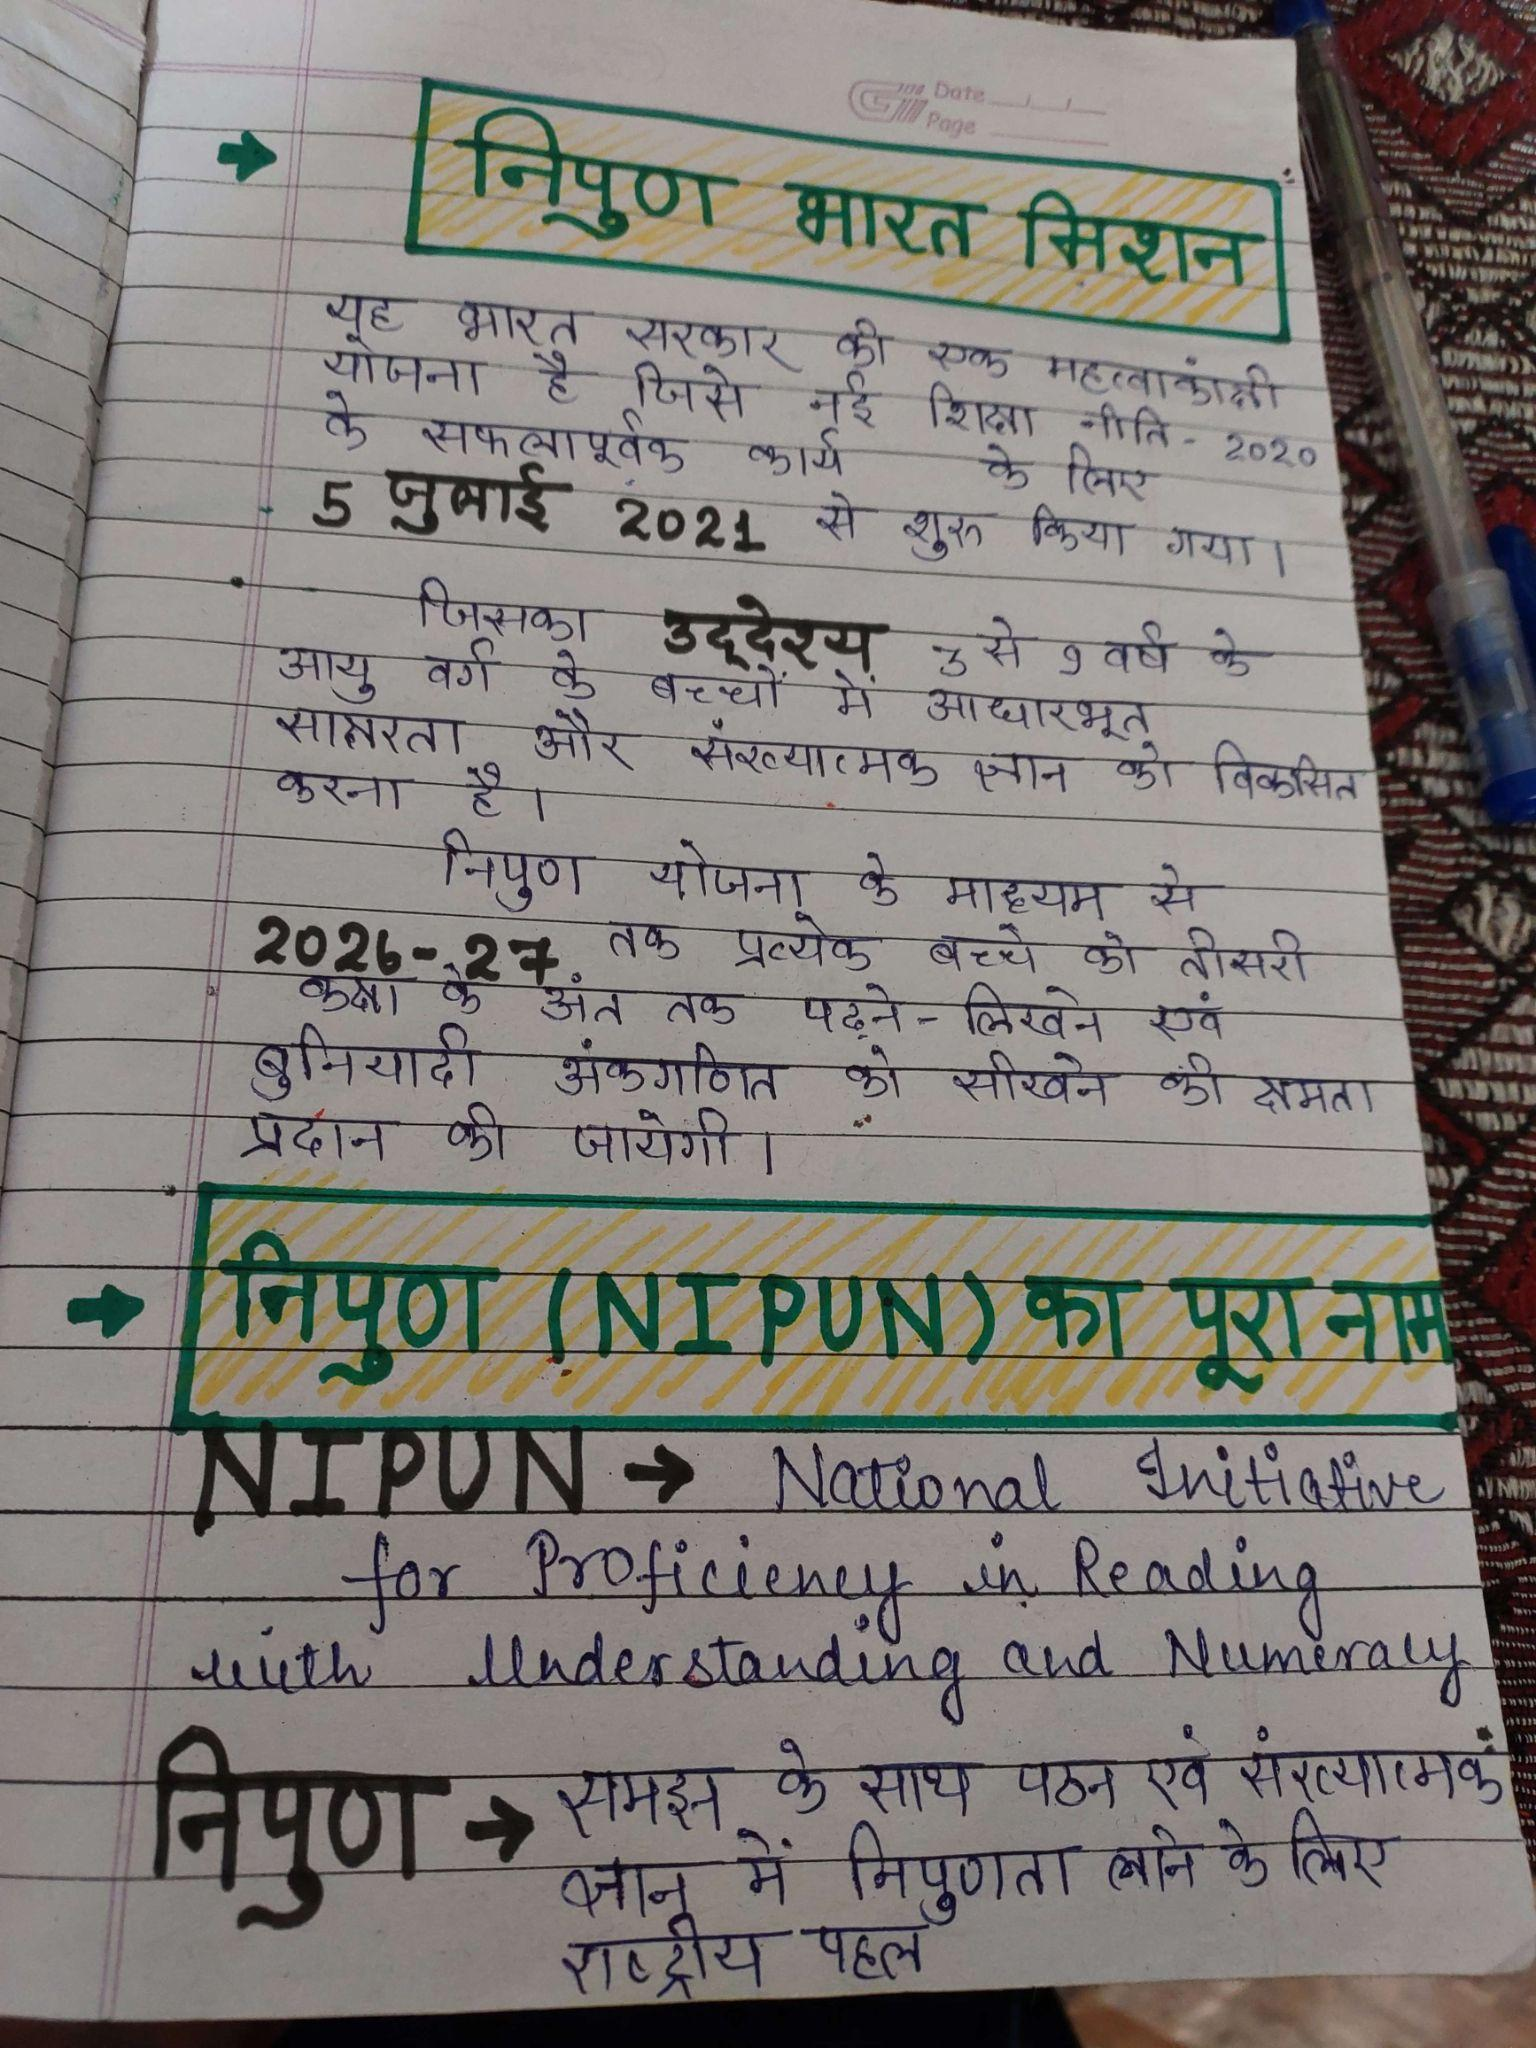 Date
Page
निपुण भारत मिशन
यह भारत सरकार की एक महत्वाकांक्षी
योजना है जिसे नई शिक्षा नीति - 2020
के सफलापूर्वक कार्य के लिए
5 जुलाई 2021 से शुरू किया गया।
जिसका उद्देश्य 3 से 9 वर्ष के
आयु वर्ग के बच्चों में आधारभूत
साक्षरता और संख्यात्मक ज्ञान को विकसित
करना है।
निपुण योजना के माध्यम से
2026-27 तक प्रत्येक बच्चे को तीसरी
कक्षा के अंत तक पढ़ने-लिखने एवं
बुनियादी अंकगणित को सीखने की क्षमता
प्रदान की जायेगी।
निपुण (NIPUN) का पूरा नाम
NIPUN → National Initiative
for Proficiency in Reading
with Understanding and Numeracy
निपुण → समझ के साथ पठन एवं संख्यात्मक
ज्ञान में निपुणता लाने के लिए
राष्ट्रीय पहल